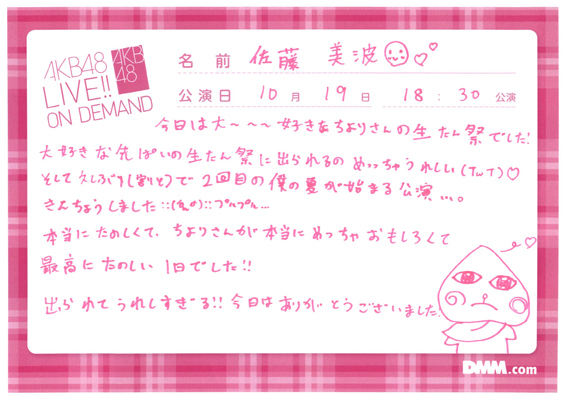 AKB48
LIVE!!
ON DEMAND
AKB
48
名前 佐藤 美波
公演日 10月19日 18:30公演
今日は大〜〜〜好きなちよりさんの生たん祭でした!
大好きな先ぱいの生たん祭に出られるのめっちゃうれしい(TωT)♡
そして久しぶり(割と)で2回目の僕の夏が始まる公演...。
きんちょうしました::プルプル...
本当にたのしくて、ちよりさんが本当にめっちゃおもしろくて
最高にたのしい1日でした!!
出られてうれしすぎる!!今日はありがとうございました。
DMM.com